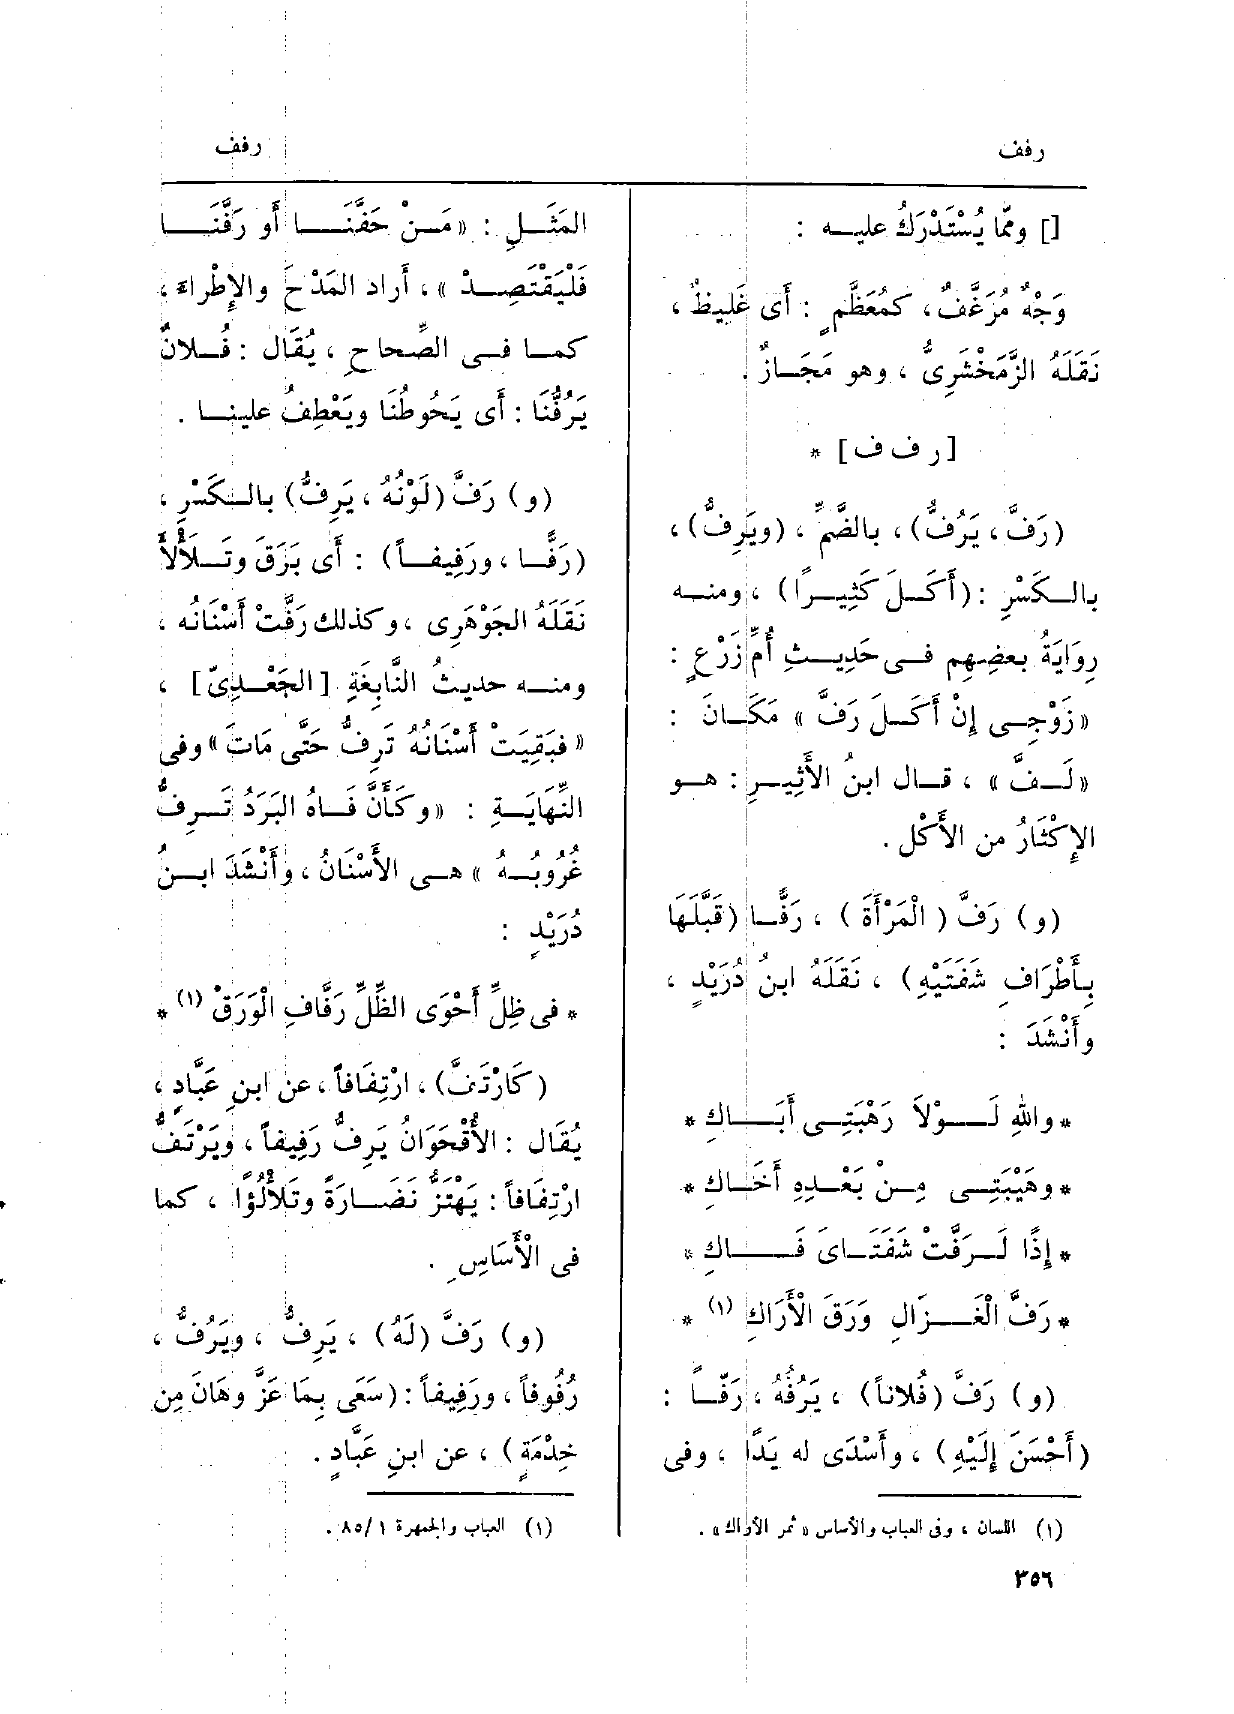 رفف
رفف
[] ومّا يُسْتَدْرَكُ عليه :
وَجْهٌ مُرَغَّفٌ، كمُعَظَّمٍ : أَى غَلِيظٌ ،
نَقَلَهُ الزَّمَخْشَرِىُّ ، وهو مَجَازٌ .
[ ر ف ف ] *
(رَفَّ ، يَرُفُّ) ، بالضَّمِّ ، (ويَرِفُّ) ،
بالكَسْرِ : (أَكَلَ كَثِيرًا) ، ومنه
رِوَايَةُ بعضِهِم فى حَدِيثِ أُمِّ زَرْعٍ :
« زَوْجِى إِنْ أَكَلَ رَفَّ » مَكَانَ :
« لَفَّ » ، قال ابنُ الأَثِيرِ : هو
الإِكْثَارُ من الأَكْلِ .
(و) رَفَّ ( الْمَرْأَةَ ) ، رَفًّا (قَبَّلَهَا
بِأَطْرَافِ شَفَتَيْهِ) ، نَقَلَهُ ابنُ دُرَيْدٍ ،
وأَنْشَدَ :
* واللهِ لَوْلاَ رَهْبَتِى أَبَاكِ *
* وهَيْبَتِى مِنْ بَعْدِهِ أَخَاكِ *
* إِذًا لَرَفَّتْ شَفَتَاىَ فَاكِ *
* رَفَّ الْغَزَالِ وَرَقَ الْأَرَاكِ (١) *
(و) رَفَّ (فُلاناً) ، يَرُفُّهُ ، رَفًّا :
(أَحْسَنَ إِلَيْهِ) ، وأَسْدَى له يَدًا ، وفى
(١) اللسان ، وفى العباب والأساس « ثمر الأراك » .
٣٥٦
المَثَلِ : « مَنْ حَفَّنَا أَو رَفَّنَا
فَلْيَقْتَصِدْ » ، أَراد المَدْحَ والإِطْراءَ ،
كما فى الصِّحاحِ ، يُقَال : فُلانٌ
يَرُفُّنَا : أَى يَحُوطُنَا ويَعْطِفُ علينا .
(و) رَفَّ (لَوْنُهُ ، يَرِفُّ) بالكَسْرِ ،
(رَفًّا ، ورَفِيفاً) : أَى بَرَقَ وتَلَأْلَأَ
نَقَلَهُ الجَوْهَرِى ، وكذلك رَفَّتْ أَسْنَانُه ،
ومنه حديثُ النَّابِغَةِ [الجَعْدِىّ] ،
« فبَقِيَتْ أَسْنَانُهُ تَرِفُّ حَتَّى مَاتَ » وفى
النِّهَايَةِ : « وكَأَنَّ فَاهُ البَرَدُ تَرِفُّ
غُرُوبُهُ » هى الأَسْنَانُ ، وأَنْشَدَ ابنُ
دُرَيْدٍ :
* فى ظِلِّ أَحْوَى الظِّلِّ رَفَّافِ الْوَرَقْ (١) *
(كَارْتَفَّ) ، ارْتِفَافاً ، عن ابنِ عَبَّادٍ ،
يُقَال : الأُقْحُوَانُ يَرِفُّ رَفِيفاً ، ويَرْتَفُّ
ارْتِفَافاً : يَهْتَزُّ نَضَارَةً وتَلأْلُؤًا ، كما
فى الْأَسَاسِ .
(و) رَفَّ (لَهُ) ، يَرِفُّ ، ويَرُفُّ ،
رُفُوفاً ، ورَفِيفاً : (سَعَى بِمَا عَزَّ وهَانَ مِن
خِدْمَةٍ) ، عن ابنِ عَبَّادٍ .
(١) العباب والجمهرة ٨٥/١ .